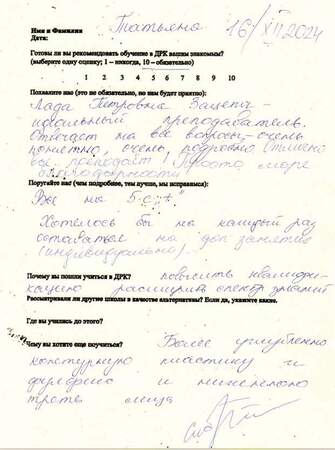 Имя и Фамилия Татьяна 16/XII 2024
Дата:
Готовы ли вы рекомендовать обучение в ДРК вашим знакомым?
(выберите одну оценку; 1 – никогда, 10 – обязательно)
1 2 3 4 5 6 7 8 9 10
Похвалите нас (это не обязательно, но нам будет приятно):
Лада Петровна
идеальный преподаватель.
Отвечает на все вопросы очень
понятно, очень подробно отлично
все преподаёт! Просто море
благодарности
Поругайте нас (чем подробнее, тем лучше, мы исправимся):
Вы на 5 с "+"
Хотелось бы на каждый раз
оставаться на доп занятие
(индивидуально).
Почему вы пошли учиться в ДРК? повысить квалифи-
кацию расширить спектр знаний
Рассматривали ли другие школы в качестве альтернативы? Если да, укажите какие.
Где вы учились до этого?
Чему вы хотите еще поучиться? Более углубленно
контурную пластику и
и нижнего
трети лица